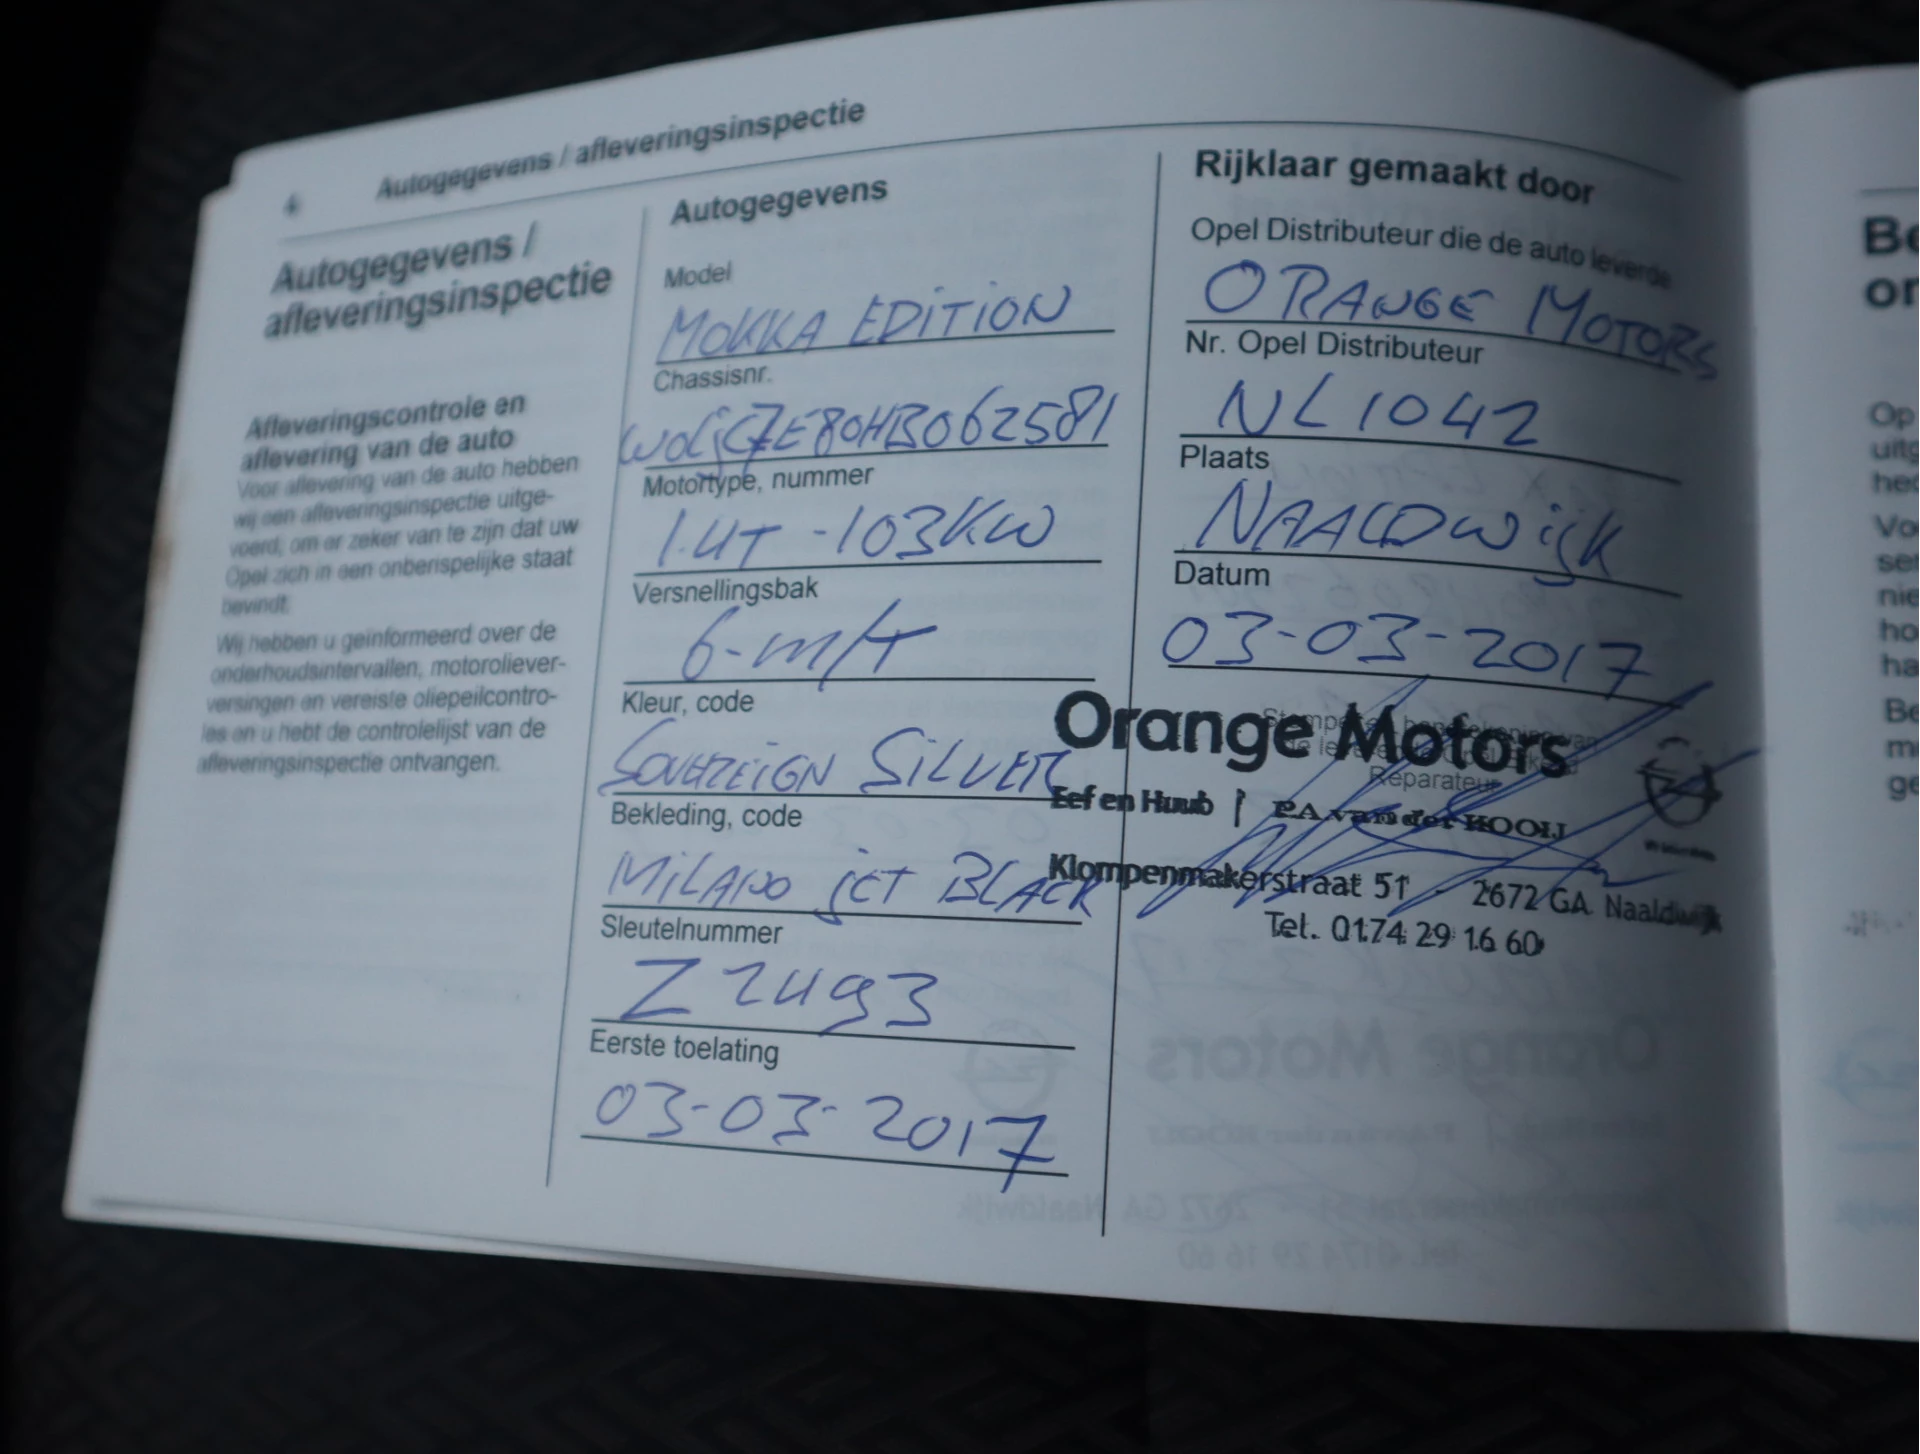 4 Autogegevens / afleveringsinspectie
Autogegevens /
afleveringsinspectie
Afleveringscontrole en
aflevering van de auto
Voor aflevering van de auto hebben
wij een afleveringsinspectie uitge-
voerd, om er zeker van te zijn dat uw
Opel zich in een onberispelijke staat
bevindt.
Wij hebben u geïnformeerd over de
onderhoudsintervallen, motoroliever-
versingen en vereiste oliepeilcontro-
les en u hebt de controlelijst van de
afleveringsinspectie ontvangen.
Autogegevens
Model
MOKKA EDITION
Chassisnr.
WOLJC7E80HB062581
Motortype, nummer
1.4T - 103KW
Versnellingsbak
6-m/T
Kleur, code
SOVEREIGN SILVER
Bekleding, code
MILANO JET BLACK
Sleutelnummer
Z2493
Eerste toelating
03-03-2017
Rijklaar gemaakt door
Opel Distributeur die de auto leverde
ORANGE MOTORS
Nr. Opel Distributeur
NL1042
Plaats
NAALDWIJK
Datum
03-03-2017
Reparateur
Orange Motors
Eef en Huub | P.A. van der KOOIJ
Klompenmakerstraat 51 - 2672 GA Naaldwijk
Tel. 0174 29 16 60
Be
Op